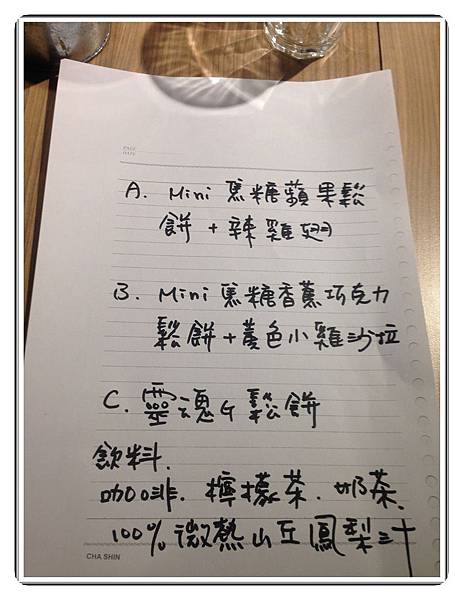 PAGE
DATE
A. Mini 焦糖蘋果鬆
餅 + 辣雞翅
B. Mini 焦糖香蕉巧克力
鬆餅+黃色小雞沙拉
C. 靈魂 & 鬆餅
飲料.
咖啡. 檸檬茶. 奶茶.
100% 微熱山丘鳳梨汁
CHA SHIN